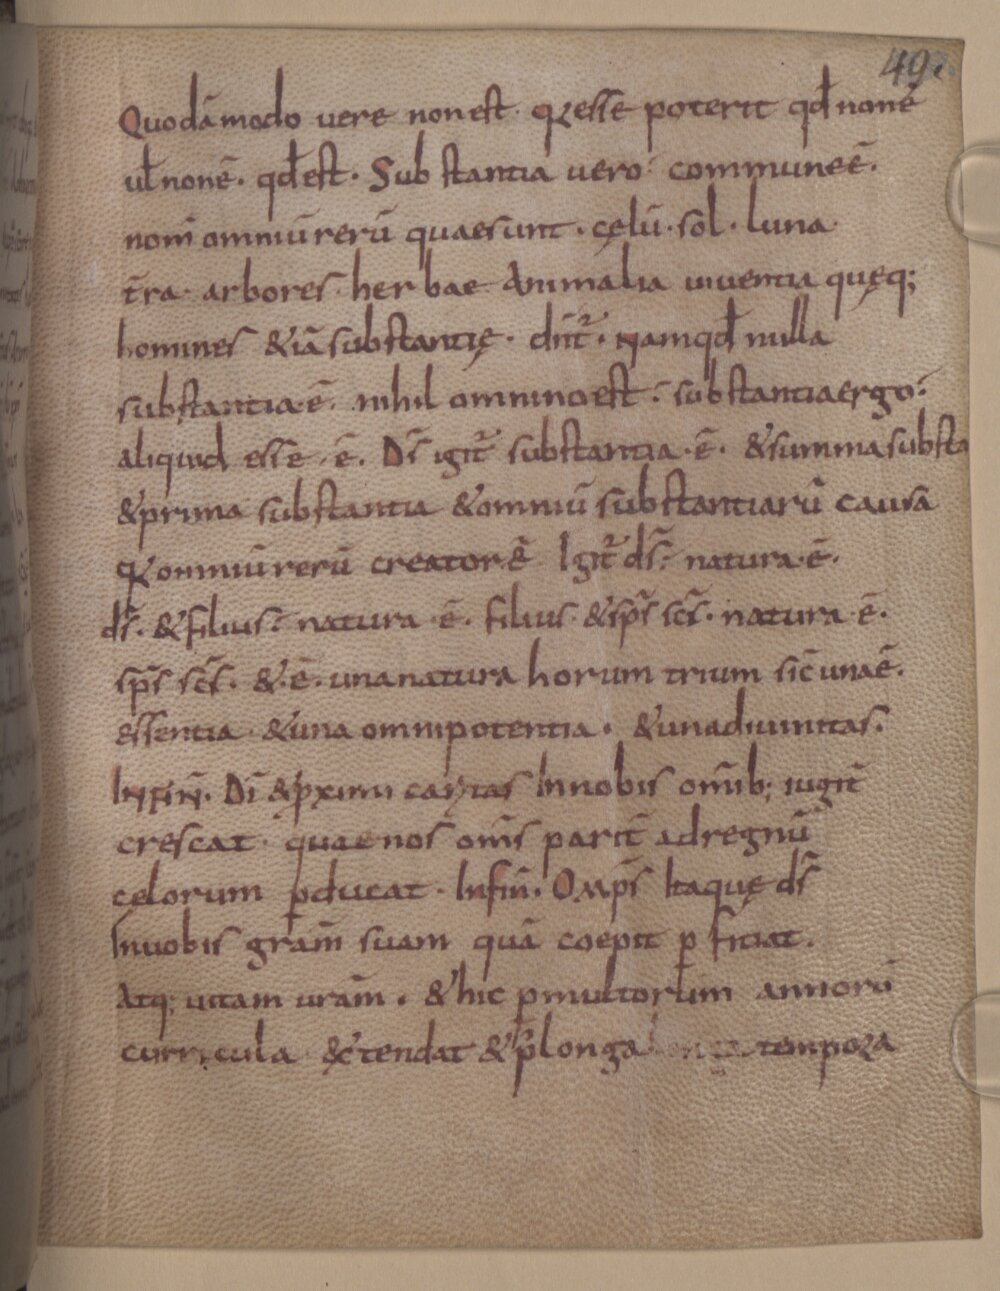 49.
Quodāmodo vere non est. Qr esse poterit qđ non ē
uł non ē. qđ est. Substantia vero communeē.
nom̄ omniū rerū quae sunt. cęlū. sol. luna.
t̄ra. arbores. herbae Animalia viventia quęq;
homines & iā substantię. dn̄r. Nam qđ nulla
substantia ē. nihil omnino est. substantia ergo.
aliquid esse. ē. Ds̄ igit̄ substantia. ē. & summa substa
& prima substantia & omniū substantiarū causa
Qr omniū rerū creator ē Igit̄ ds̄. natura. ē.
ds̄. & filius. natura. ē. filius. & sps̄ scs̄. natura. ē.
sps̄ scs̄. & ē. una natura horum trium sic̄ una ē.
essentia. & una omnipotentia. & una divinitas.
INFIN̄. Dī & p̱ximi caritas In nobis om̄ib; iugit̄
crescat. quae nos om̄s parit̄ ad regnū
cęlorum p̱ducat. Infin̄. Omps̄ Itaquę ds̄
In vobis gr̄am suam quā coepit p̱ficiat.
Atq; vitam vr̄am. & hic p̱ multorum annorū
curricula &tendat & p̱longa tempora